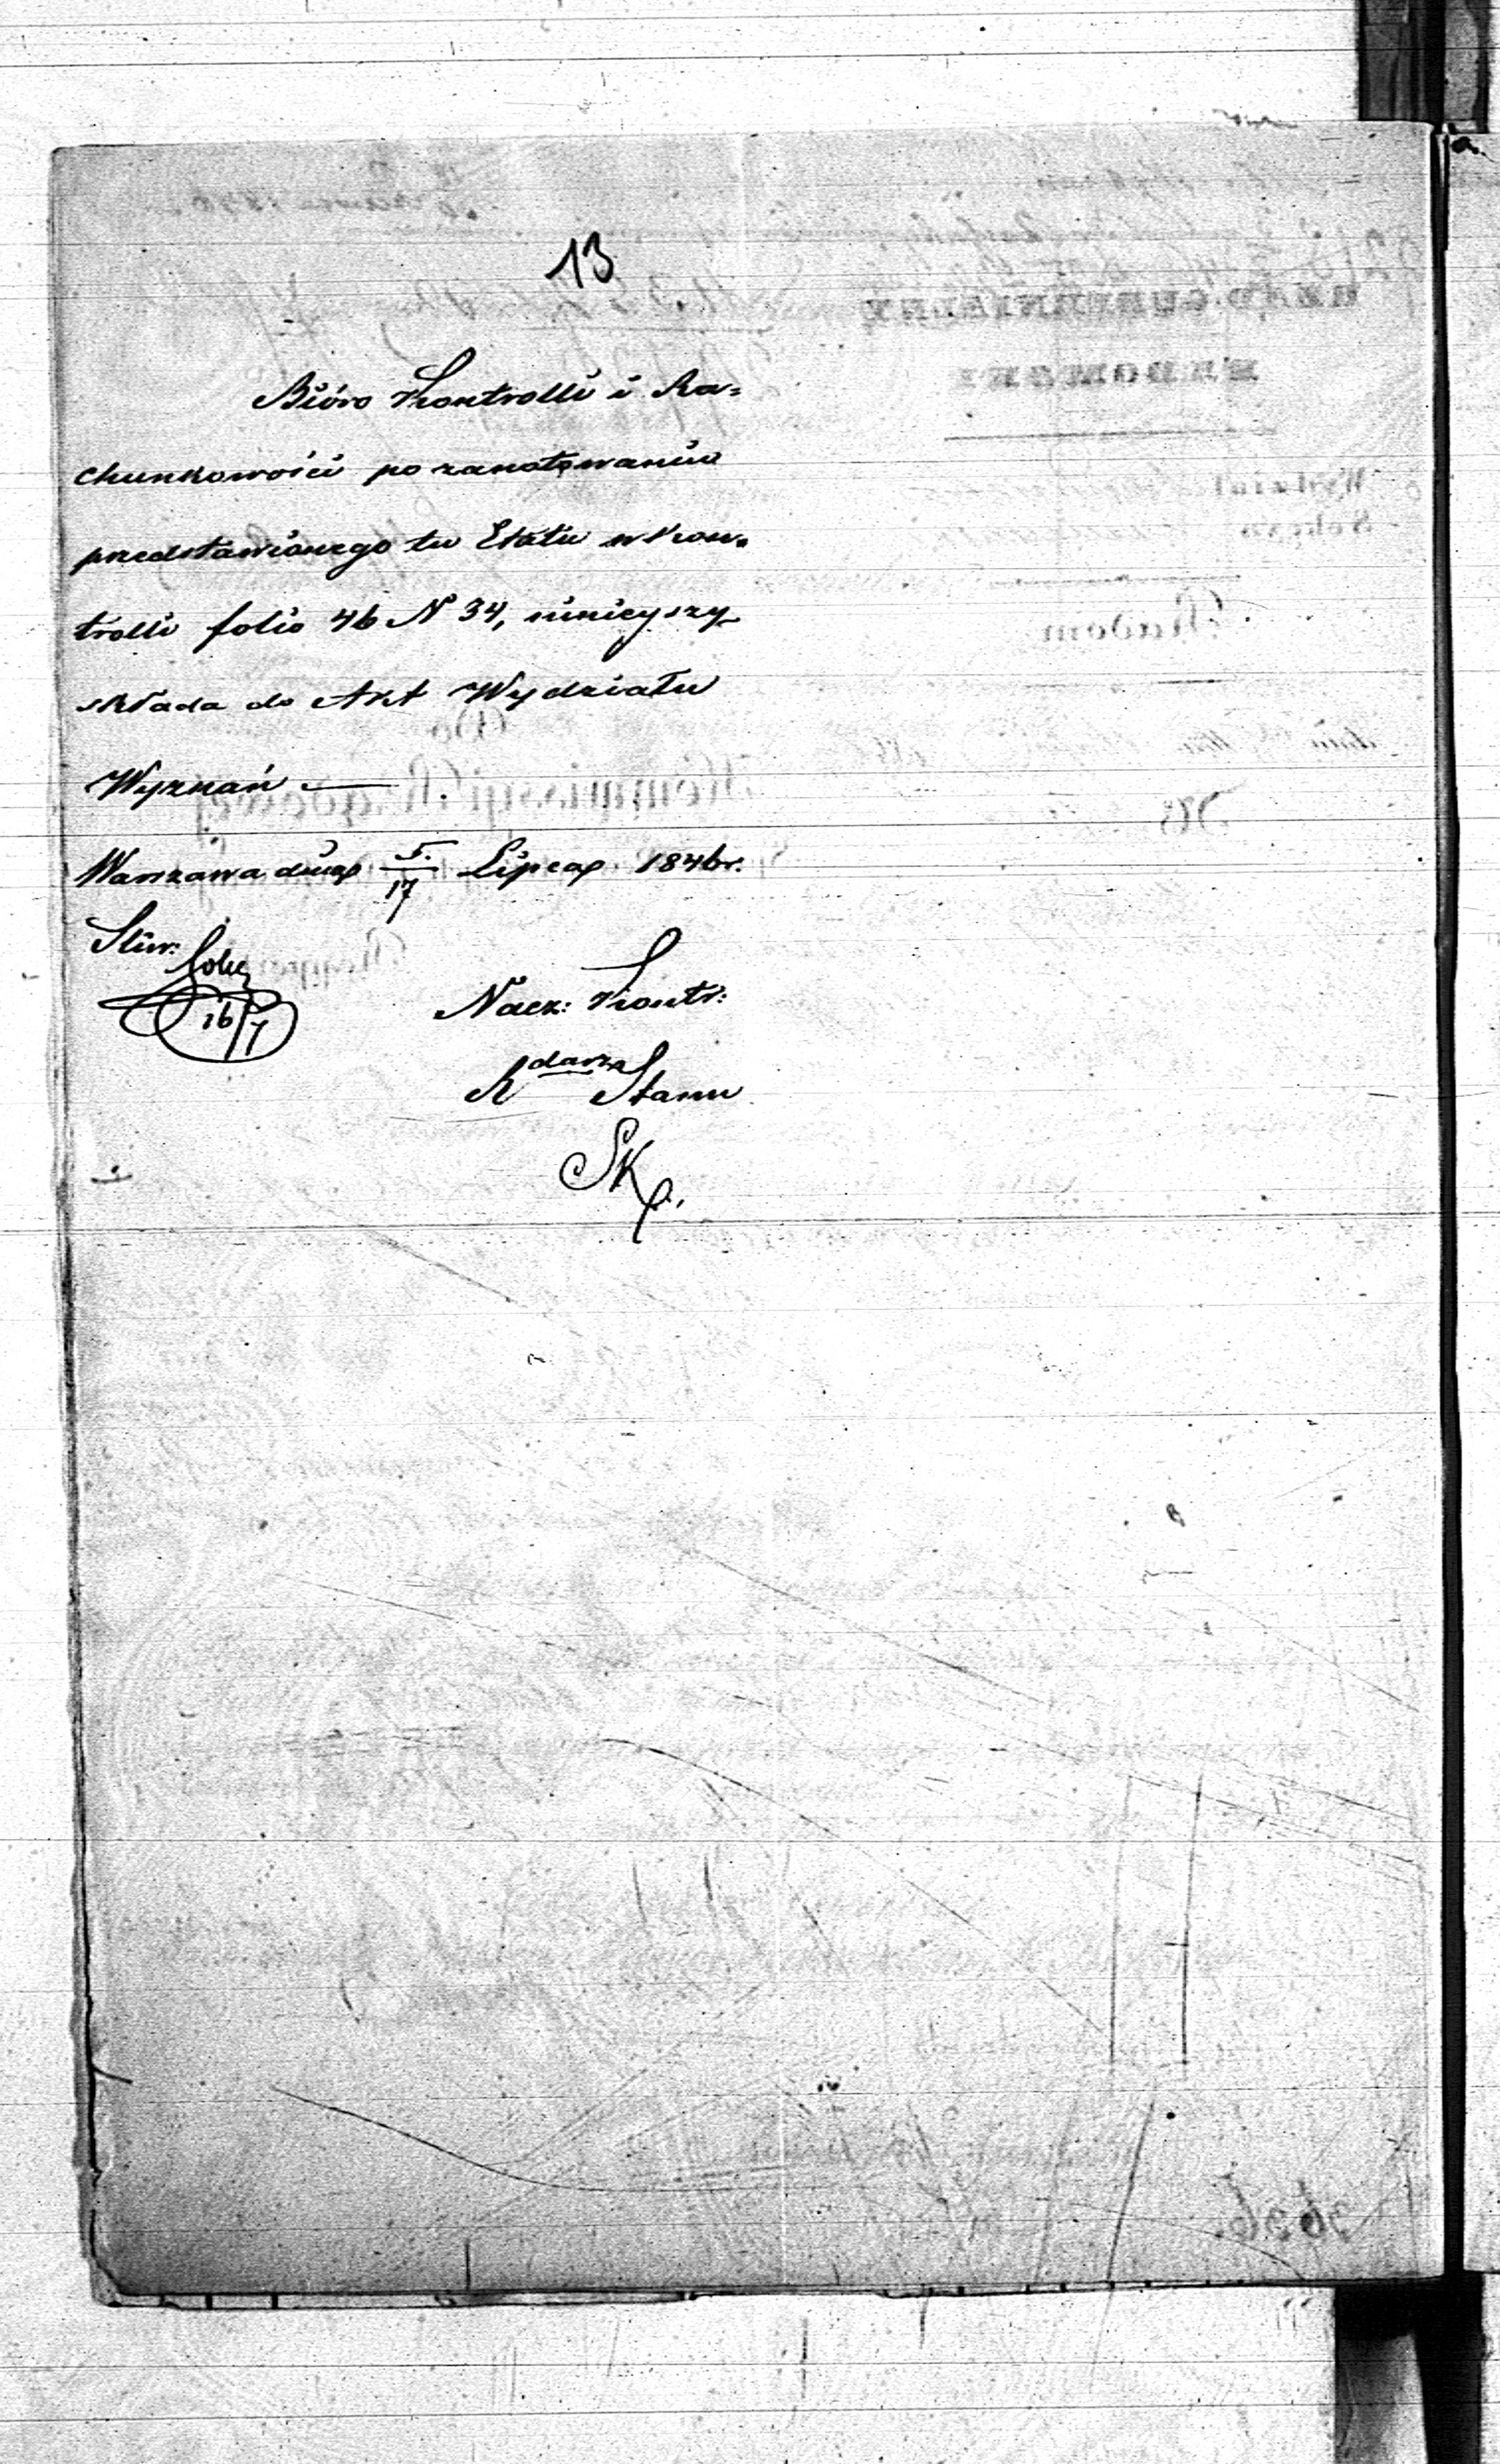 13
Bióro Kontrolli i Ra=
chunkowości po zanotowaniu
przedstawionego tu Etatu w Kon=
trolli folio 46 N 34, niniejszy
składa do Akt Wydziału
Wyznań —
Warszawa dnia 5/17 Lipca 1846 r.
Stwr:
16/7
Nacz: Kontr:
Rdarza Stanu
SK